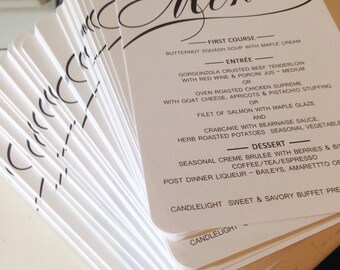 Menu
FIRST COURSE
BUTTERNUT SQUASH SOUP WITH MAPLE CREAM
ENTRÉE
GORGONZOLA CRUSTED BEEF TENDERLOIN
WITH RED WINE & PORCINI JUS ~ MEDIUM
OR
OVEN ROASTED CHICKEN SUPREME
WITH GOAT CHEESE, APRICOTS & PISTACHIO STUFFING
OR
FILET OF SALMON WITH MAPLE GLAZE
AND
CRABCAKE WITH BEARNAISE SAUCE,
HERB ROASTED POTATOES SEASONAL VEGETABLE
DESSERT
SEASONAL CREME BRULEE WITH BERRIES &
COFFEE/TEA/ESPRESSO
POST DINNER LIQUEUR ~ BAILEYS, AMARETTTO
CANDLELIGHT SWEET & SAVORY BUFFET
CANDLELIGHT